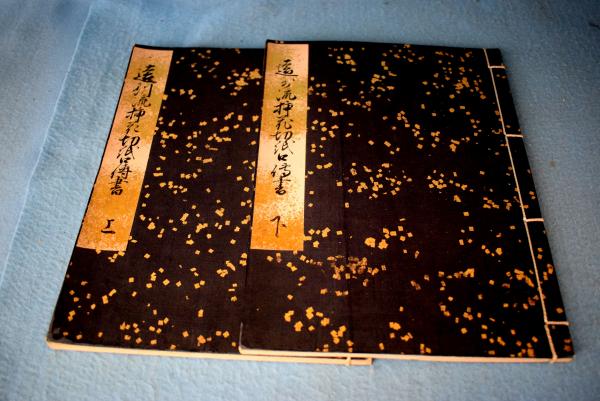 遠州流挿花切紙口傳書 上
遠州流挿花切紙口傳書 下